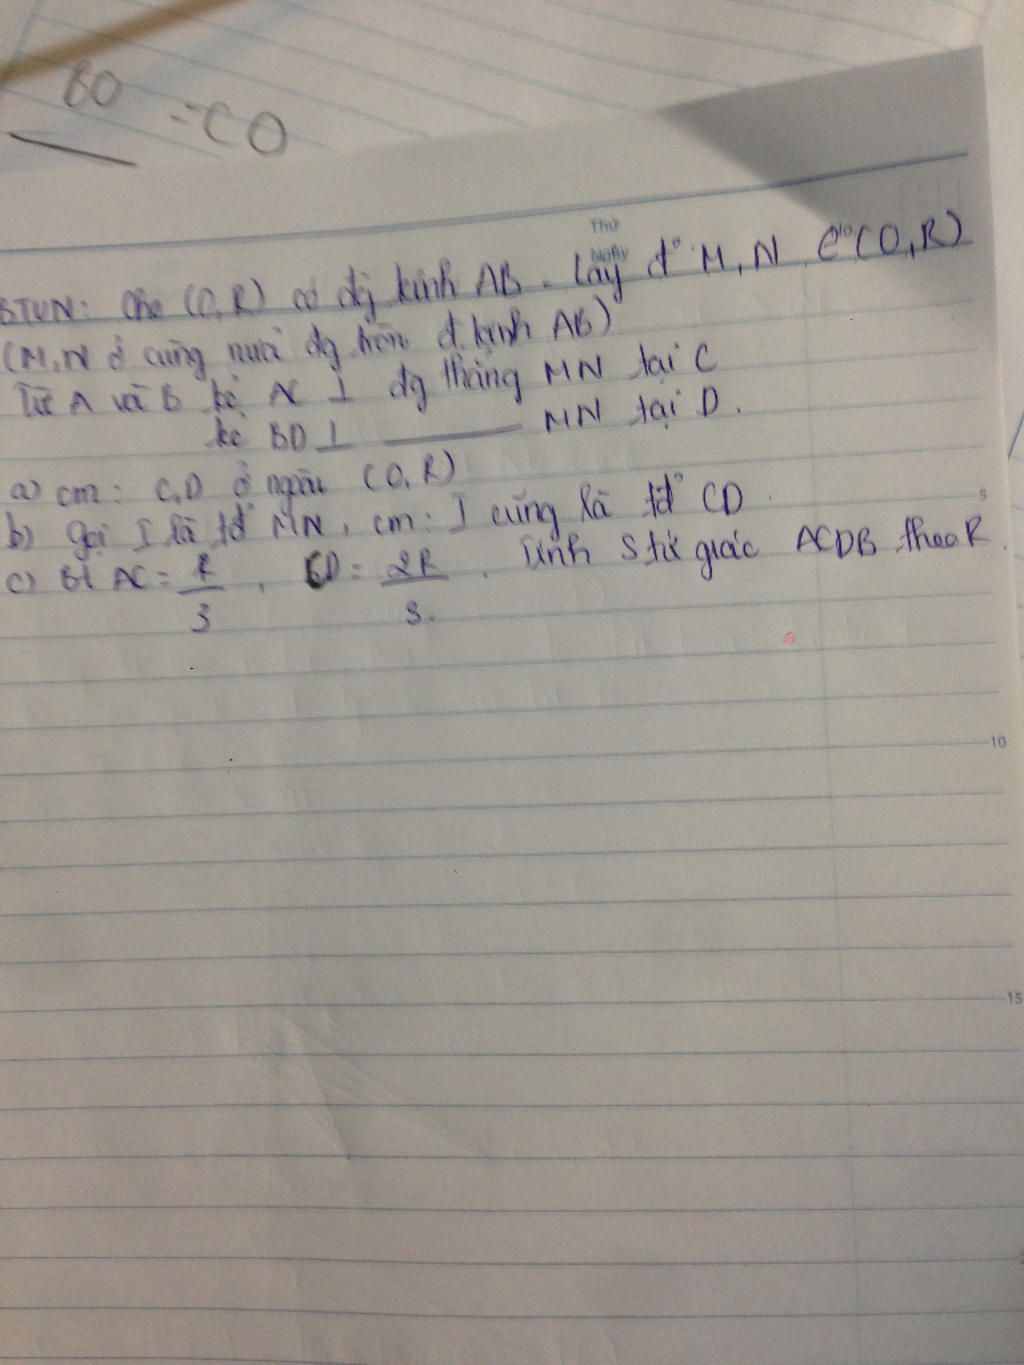 BO
= CO
Thứ
Ngày
No
BTVN: Cho (O,R) có đg kính AB. Lấy đ' M, N ∈ (O,R)
(M,N ở cùng nửa đg tròn đ.kính AB)
Từ A và B kẻ AC ⊥ đg thẳng MN tại C
kẻ BD ⊥ ——— MN tại D.
a) cm: C,D ở ngoài (O,R)
b) gọi I là tđ' MN, cm: I cũng là tđ' CD.
c) Bt AC = R/3, = 2R/3. Tính S tứ giác ACDB theo R.
5
10
15